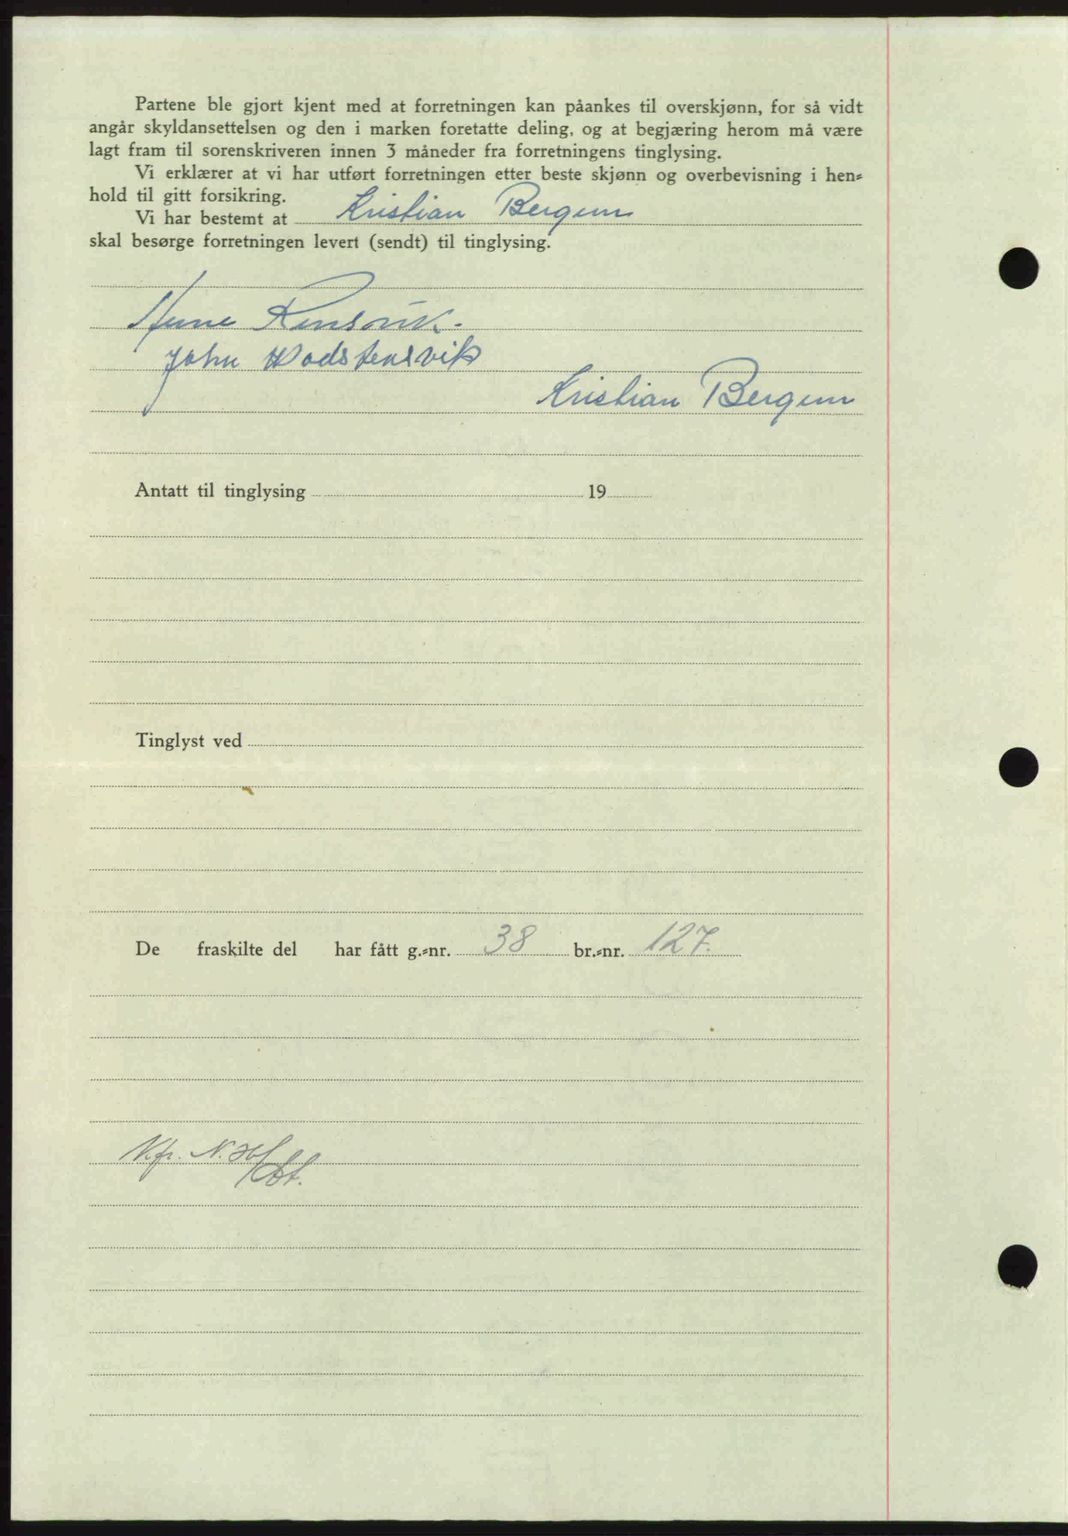 Partene ble gjort kjent med at forretningen kan påankes til overskjønn, for så vidt
angår skyldansettelsen og den i marken foretatte deling, og at begjæring herom må være
lagt fram til sorenskriveren innen 3 måneder fra forretningens tinglysing.
Vi erklærer at vi har utført forretningen etter beste skjønn og overbevisning i hen-
hold til gitt forsikring.
Vi har bestemt at Kristian Bergum
skal besørge forretningen levert (sendt) til tinglysing.
John Wadstensvik
Kristian Bergum
Antatt til tinglysing 19
Tinglyst ved
De fraskilte del har fått g.-nr. 38 br.-nr. 127.
Kfr. N.